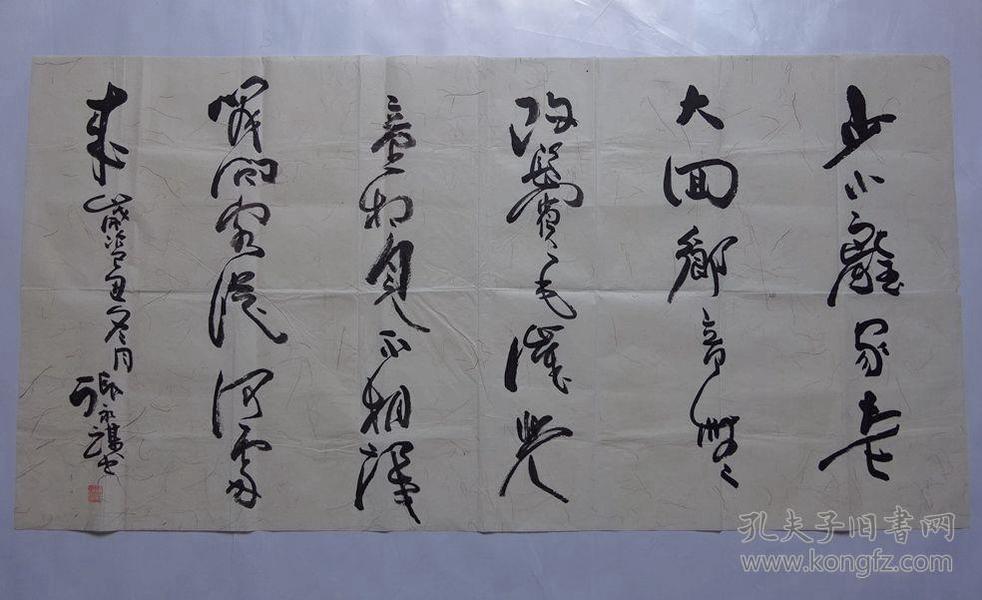 少小離家老
大回鄉音無
改鬢毛衰兒
童相見不相識
笑問客從何處
來 歲
孔夫子旧书网
www.kongfz.com